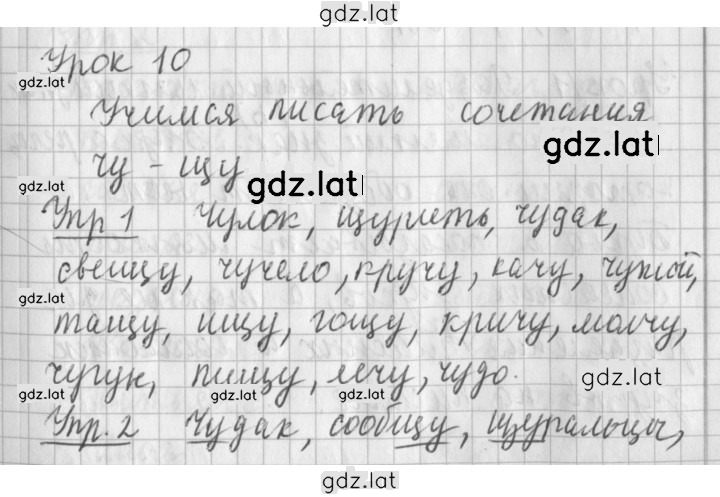 gdz.lat
Урок 10
gdz.lat
Учимся писать сочетания
gdz.lat
чу - щу
gdz.lat gdz.lat
Упр 1 Чулок, щурить, чудак,
свещу, чучело, кручу, качу, чужой,
gdz.lat gdz.lat gdz.lat
тащу, ищу, гощу, кричу, молчу,
чугук, пищу, лечу, чудо.
gdz.lat gdz.lat gdz.lat
Упр. 2 Чудак, сообщу, щуральцы,
gdz.lat